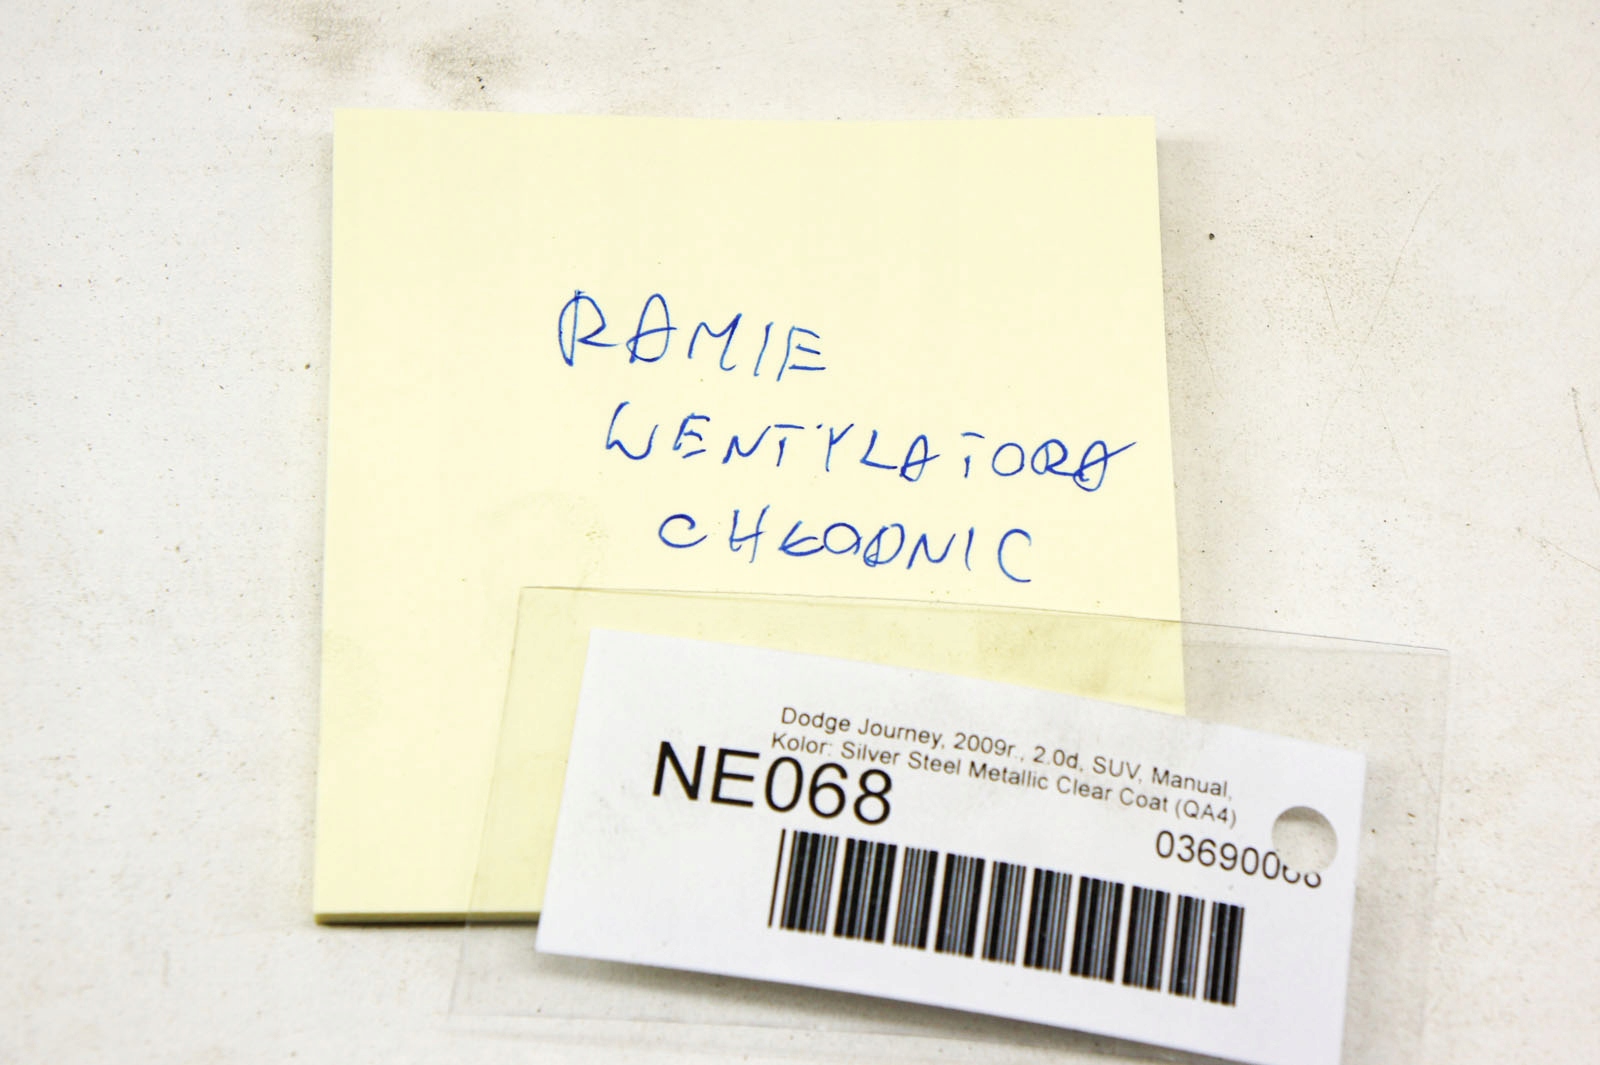 RAMIE
WENTYLATORA
CHŁODNIC
Dodge Journey, 2009r., 2.0d, SUV, Manual,
Kolor: Silver Steel Metallic Clear Coat (QA4)
NE068